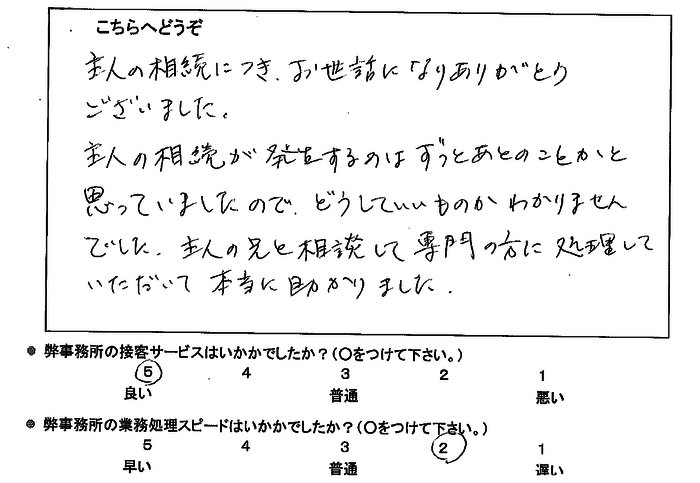 こちらへどうぞ
主人の相続につき、お世話になりありがとう
ございました。
主人の相続が発生するのはずっとあとのことかと
思っていましたので、どうしていいものかわかりません
でした。主人の兄と相談して専門の方に処理して
いただいて本当に助かりました。
● 弊事務所の接客サービスはいかがでしたか？(〇をつけて下さい。)
5 4 3 2 1
良い 普通 悪い
● 弊事務所の業務処理スピードはいかがでしたか？(〇をつけて下さい。)
5 4 3 2 1
早い 普通 遅い